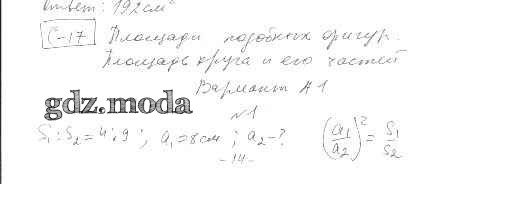 ответ: 192 см²
С-17 Площади подобных фигур.
Площадь круга и его частей
Вариант А1
gdz.moda
№1
S₁:S₂=4:9; a₁=8см; a₂-? (a₁/a₂)²=S₁/S₂
-14-